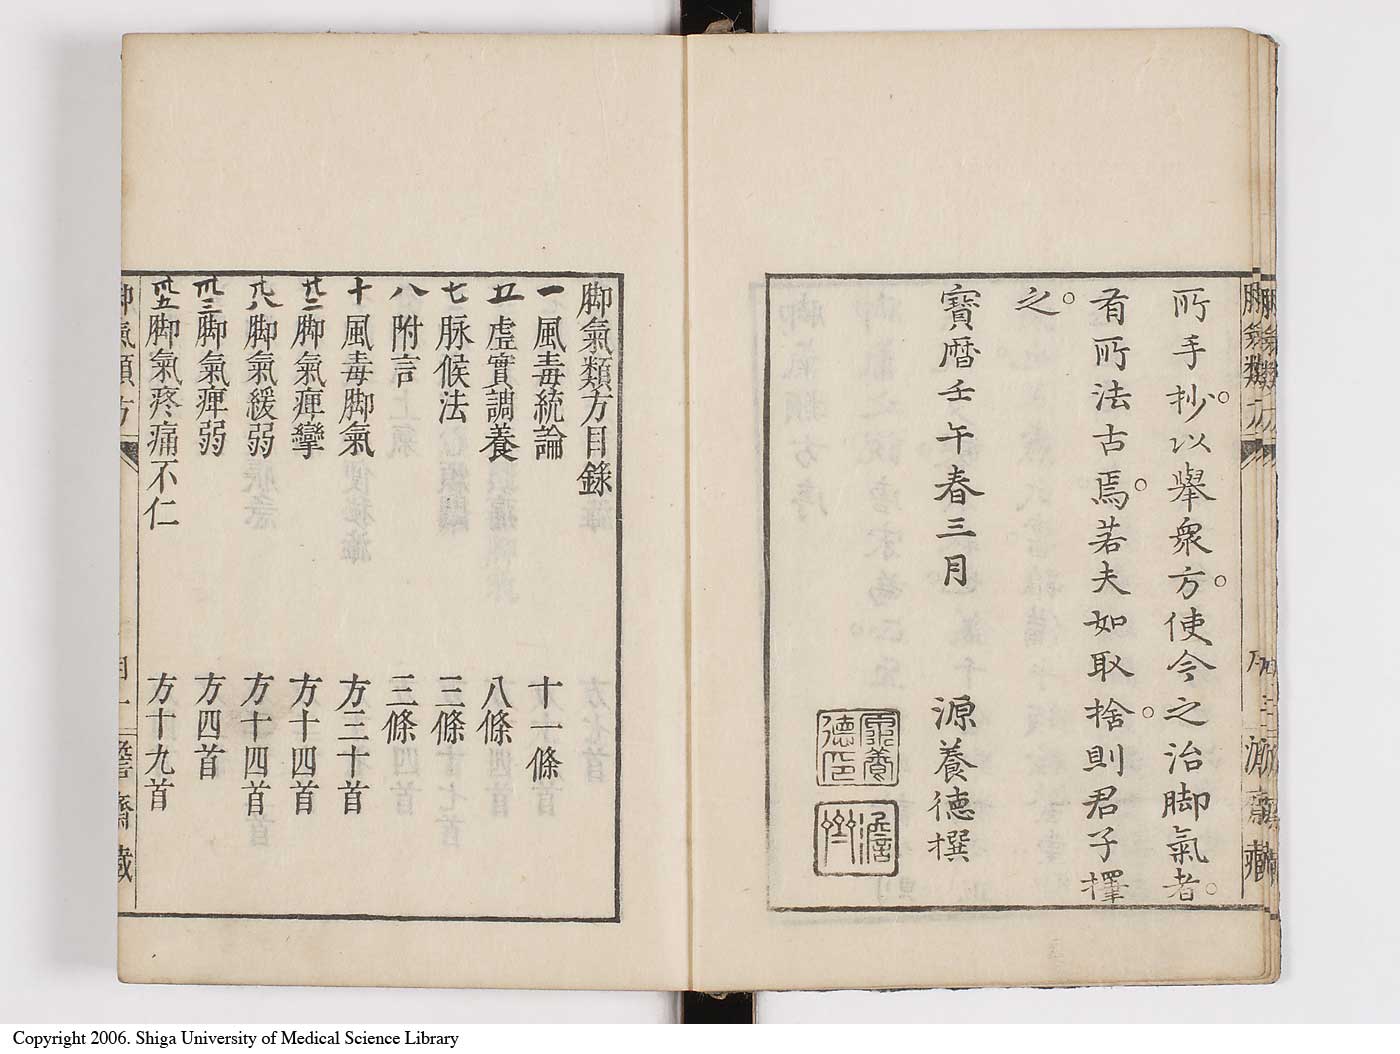 所手抄。以舉衆方。使今之治脚氣者。
有所法古焉。若夫如取捨。則君子擇
之。
寶暦壬午春三月 源養德撰
脚氣類方目錄
一風毒統論 十一條
五虛實調養 八條
七脉候法 三條
八附言 三條
十風毒脚氣 方三十首
廿二脚氣痹攣 方十四首
廿八脚氣緩弱 方十四首
卅三脚氣痹弱 方四首
卅五脚氣疼痛不仁 方十九首
脚氣類方
Copyright 2006. Shiga University of Medical Science Library